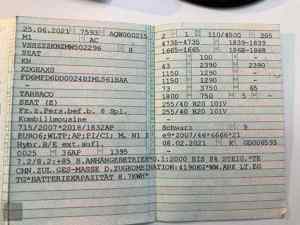 25.06.2021 7593 AQW000215
M1 AC
VSSZZZKNZMW502296 8
SEAT
KN
TARRACO
SEAT (E)
Fz.z.Pers.bef.b. 8 Spl.
Kombilimousine
715/2007*2018/1832AP
EURO6;WLTP;AP;PI/CI; M, N1 I
Hybr.B/E ext.aufl.
0025 36AP 1395
2 1 110/4500 205
4735-4735 1839-1839
1665-1665
100 -
43 2390 2390
1150 1290 -
1150 1290 -
73 3750 65
1800 750 5 -
255/40 R20 101V
-
255/40 R20 101V
-
Schwarz 9
e9*2007/46*6666*21
08.02.2021 K
7.2/8.2:+85 B.ANHÄNGEBETRIEB*O.1:2000 BIS 8% STEIG.*TE
CHN.ZUL.GES-MASSE D.ZUGKOMBINATION:4190KG*WW.AHK LT.EG
TG*BATTERIEKAPAZITÄT 8.7KWH*